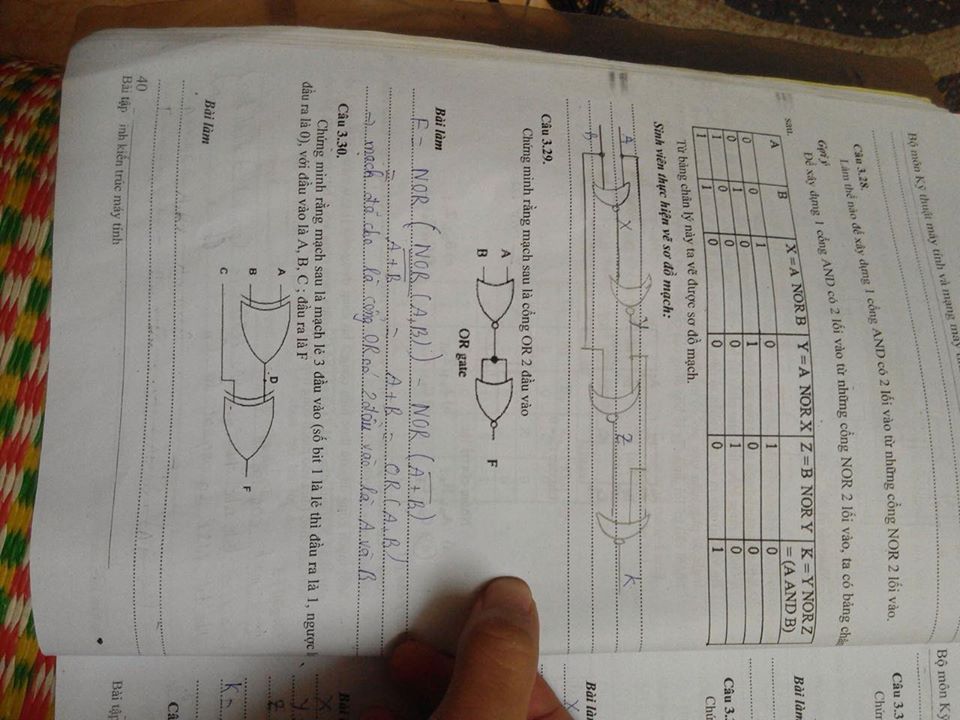 Bộ môn Kỹ thuật máy tính và mạng máy
Bộ môn Kỹ
Câu 3.28.
Làm thế nào để xây dựng 1 cổng AND có 2 lối vào từ những cổng NOR 2 lối vào.
Gợi ý
Để xây dựng 1 cổng AND có 2 lối vào từ những cổng NOR 2 lối vào, ta có bảng chân
sau.
A B X = A NOR B Y = A NOR X Z = B NOR Y K = Y NOR Z = (A AND B)
0 0 1 0 1 0
0 1 0 1 0 0
1 0 0 0 1 0
1 1 0 0 0 1
Từ bảng chân lý này ta vẽ được sơ đồ mạch.
Sinh viên thực hiện vẽ sơ đồ mạch:
A X Y Z K
B
Câu 3.29.
Chứng minh rằng mạch sau là cổng OR 2 đầu vào
A
B
F
OR gate
Bài làm
F = NOR ( NOR (A,B) ) = NOR ( A + B )
= A + B = A + B = OR (A, B)
=> mạch đã cho là cổng OR có 2 đầu vào là A và B
Câu 3.30.
Chứng minh rằng mạch sau là mạch lẻ 3 đầu vào (số bit 1 là lẻ thì đầu ra là 1, ngược
đầu ra là 0), với đầu vào là A, B, C ; đầu ra là F
A
D
B
F
C
Bài làm
40
Bài tập inh kiến trúc máy tính
Câu 3.3
Chứn
Bài làm
Câu 3.
Chú
Bài là
X
X
Y
Z
K =
Câ
Bài tậ